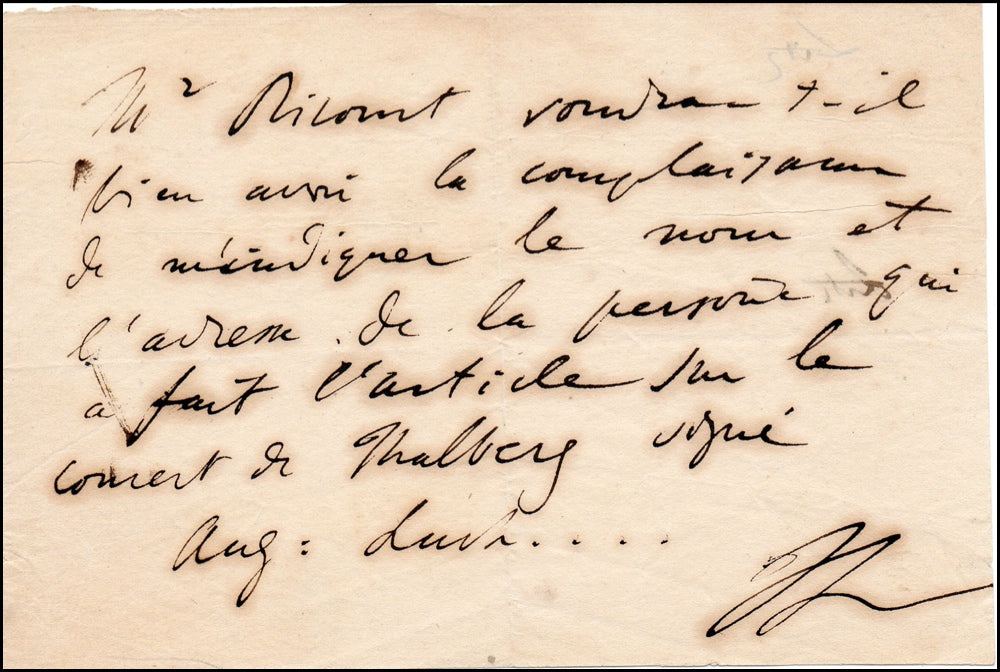 Mr Ricourt voudra t-il
bien avoir la complaisance
de m'indiquer le nom et
l'adresse de la persone qui
a fait l'article sur le
concert de Thalberg signé
Aug: Luch....